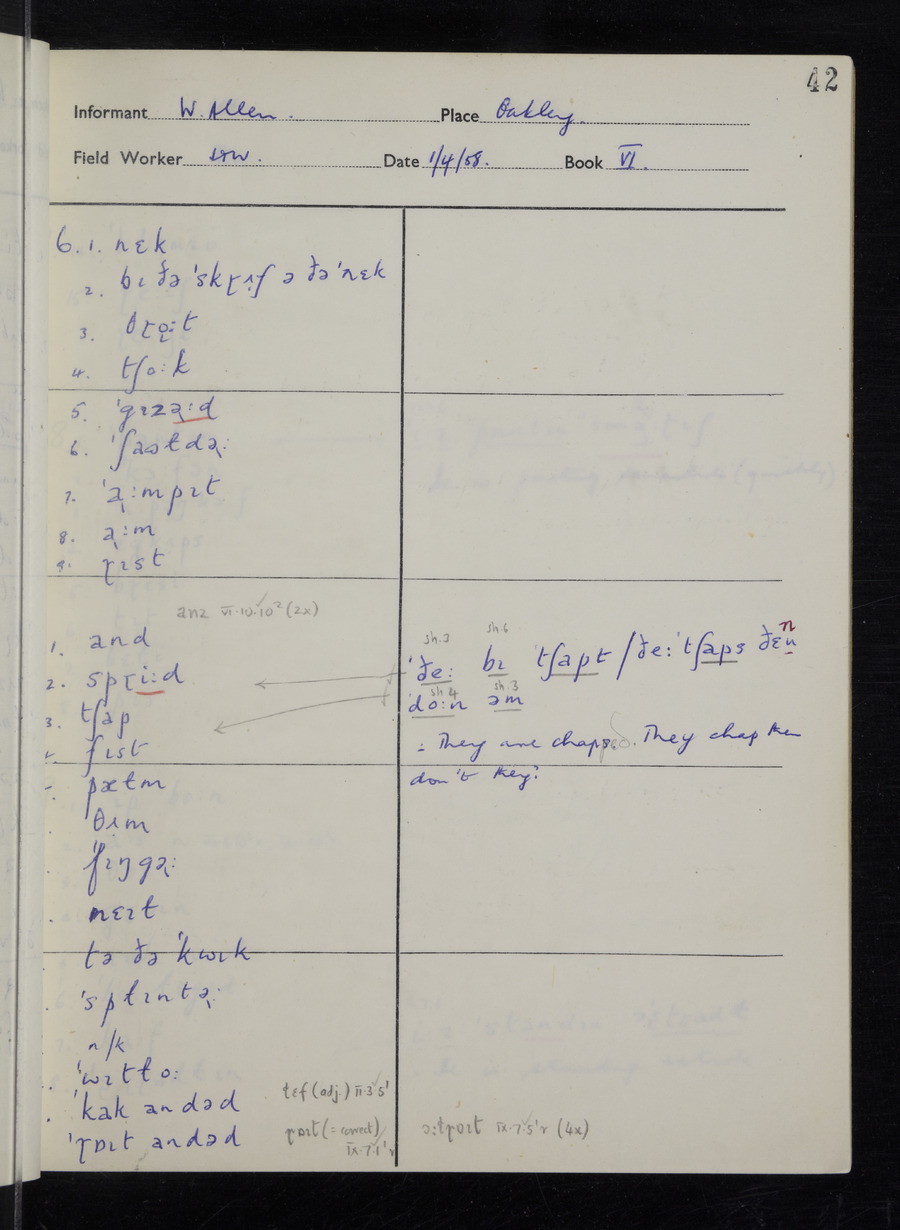 42
Informant W. Allen. Place Oakley.
Field Worker Date 1/4/58. Book VI.
6. 1. nɛk
2. bɪ ðə 'skɽʌf ə ðə 'nɛk
3. θɽo̤:t
4. tʃo:k
5. 'gɪzəɽ:d
6. 'ʃaʊɫdəɽ:
7. 'aɽ:mpɪt
8. aɽ:m
9. ɽɪst
anz VI·10·10² (2x)
1. and
2. spɽi:d
3. tʃap
fɪst
pætm
θʌm
'fɪŋgəɽ:
nɛɪt
tə ðə 'kwɪk
'splɪntəɽ:
n/k
'wɪtlo:
'kak andəd
'ɽɒɪt andəd
tɛf (adj.) II·3·5'
ɽɒɪt (= correct)
IX·7·1' r
sh.3 sh.6
'ðe: bɪ 'tʃapt / ðe: 'tʃaps ðɛn
n
sh.4 sh.3
do:n əm
: They are chapped. They chap then
don't they?
ɔ:ɫɽɒɪt IX·7·5' r (4x)